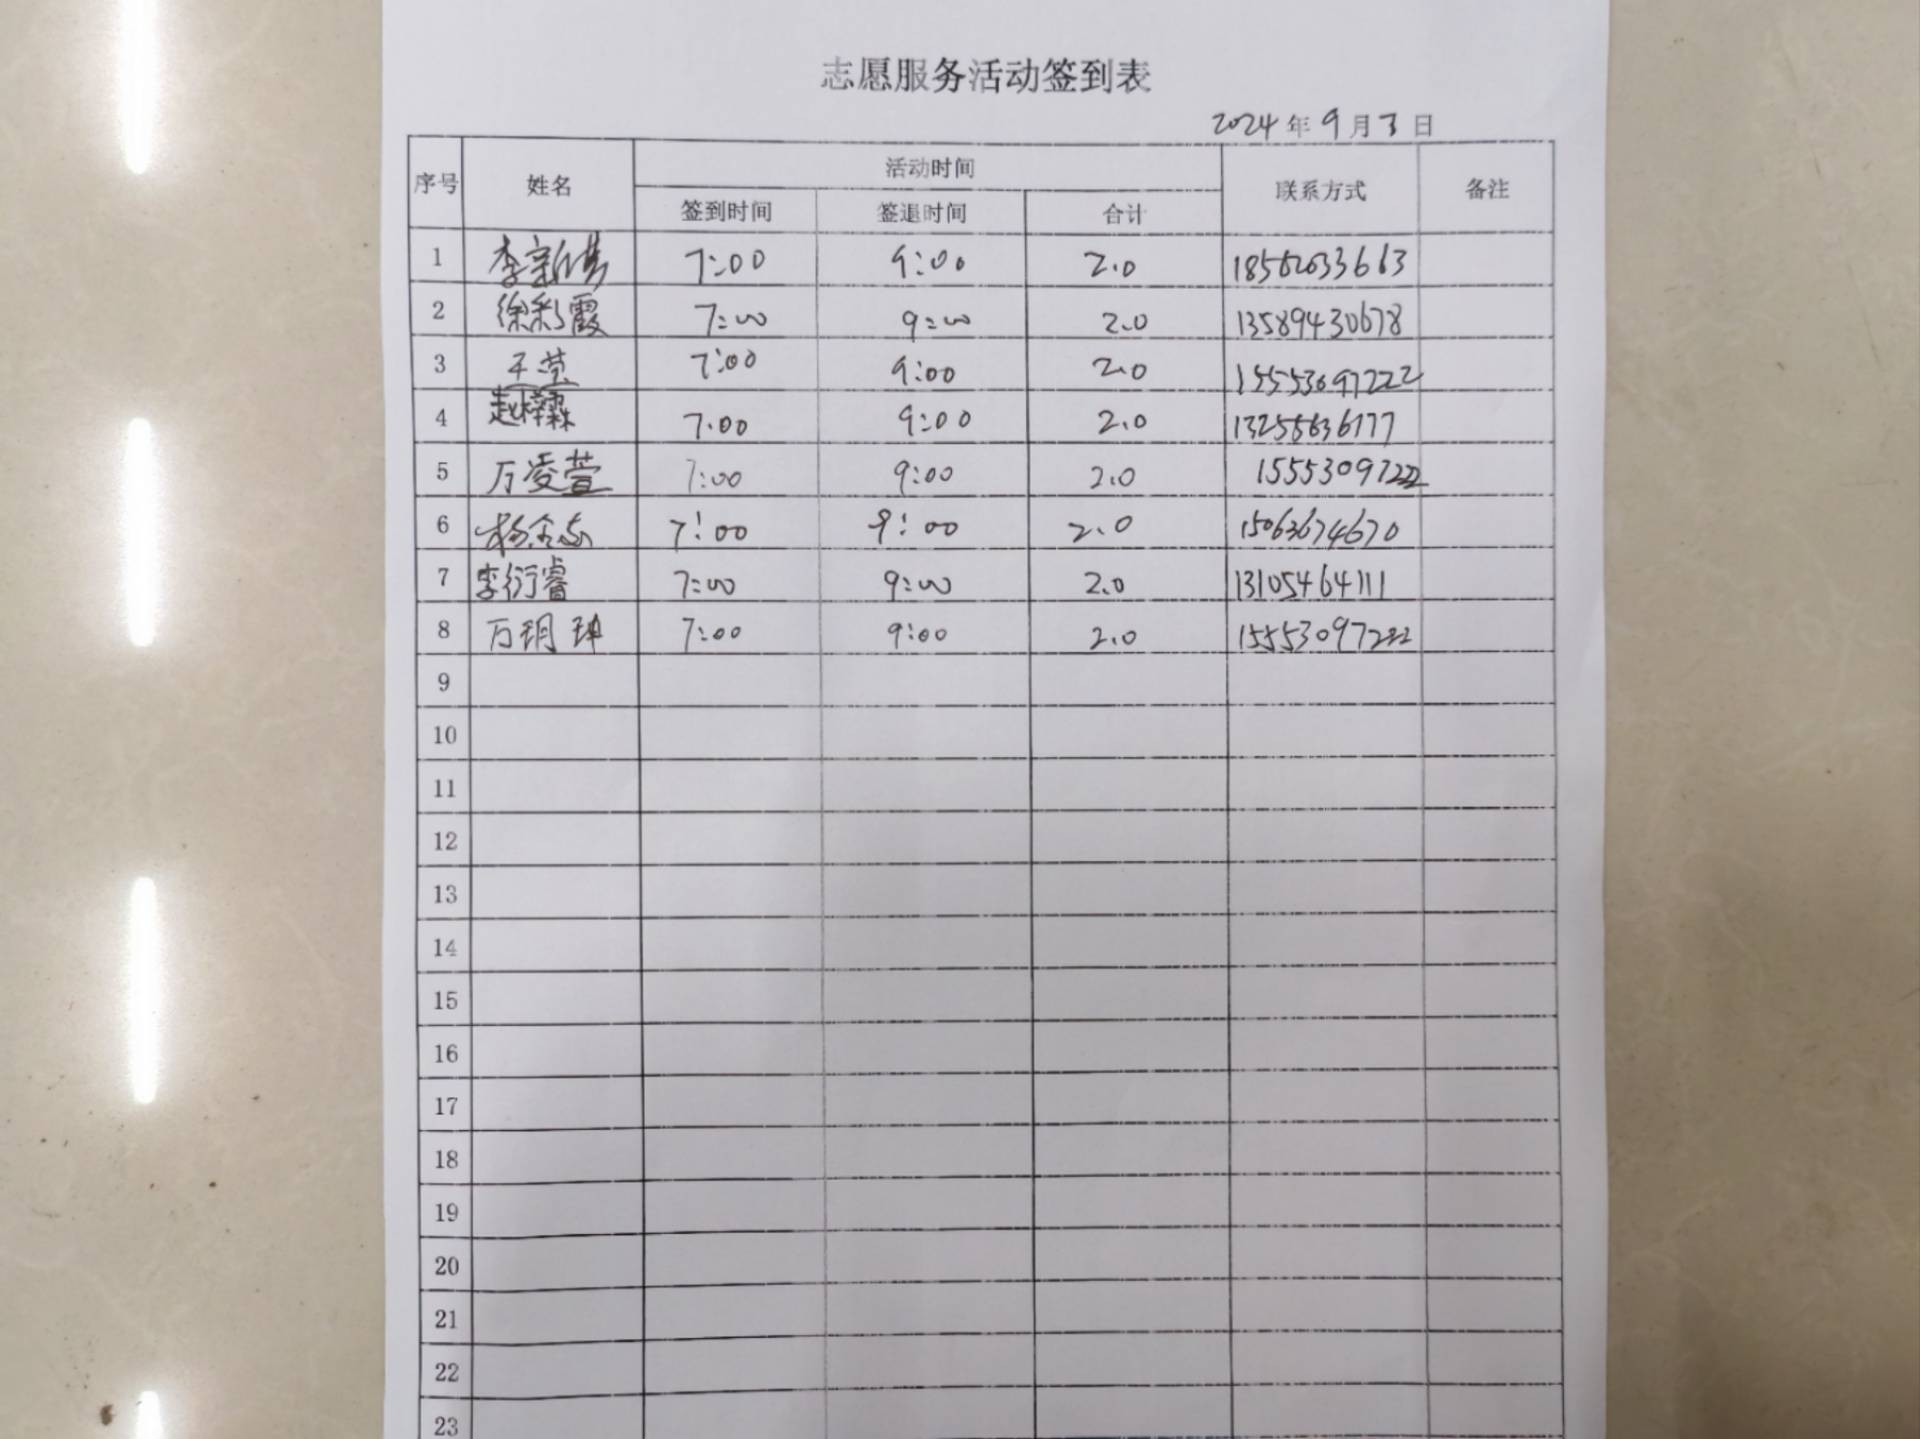 志愿服务活动签到表
2024年9月3日
序号 姓名 活动时间 联系方式 备注
签到时间 签退时间 合计
1 李 7:00 9:00 2.0 18562633663
2 徐彩霞 7:00 9:00 2.0 13589430678
3 王莹 7:00 9:00 2.0 15553097222
4 赵梓霖 7:00 9:00 2.0 13255636177
5 万凌萱 7:00 9:00 2.0 15553097222
6 杨 7:00 9:00 2.0 15063674670
7 李衍睿 7:00 9:00 2.0 13105464111
8 万玥珅 7:00 9:00 2.0 15553097222
9
10
11
12
13
14
15
16
17
18
19
20
21
22
23